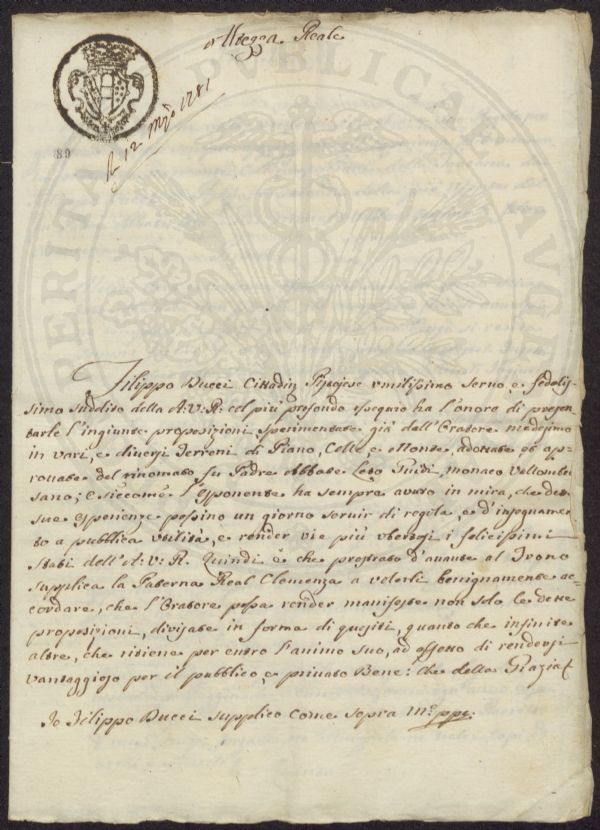 Altezza Reale
li 12 Mgio 1781
89
PERITA PUBLICAE AUGE
Filippo Bucci Cittadin Pistojese umilissimo Servo, e fedelis-
simo Suddito della A. V. R. col più profondo ossequio ha l'onore di presen-
tarle l'ingiunte proposizioni, sperimentate già dall'Oratore medesimo
in varj, e diversi Terreni di Piano, Colle, e Monte, adottate ed ap-
provate del rinomato fu Padre Abbate Monaco Vallombro
sano; e siccome l'Esponente ha sempre avuto in mira, che dette
sue esperienze possino un giorno servir di regola, e d'insegnamen-
to a pubblica utilità, e render vie più ubertosi i felicissimi
Stati dell'A: V: R. Quindi è che prostrato d'avante al Trono
supplica la Paterna Real Clemenza a volerli benignamente ac-
cordare, che l'Oratore possa render manifeste non solo le dette
proposizioni, divisate in forma di quesiti, quanto che infinite
altre, che ritiene per entro l'animo suo, ad effetto di rendersi
vantaggioso per il pubblico, e privato Bene: Che della Grazia
Io Filippo Bucci supplico Come sopra Mo: ppa: